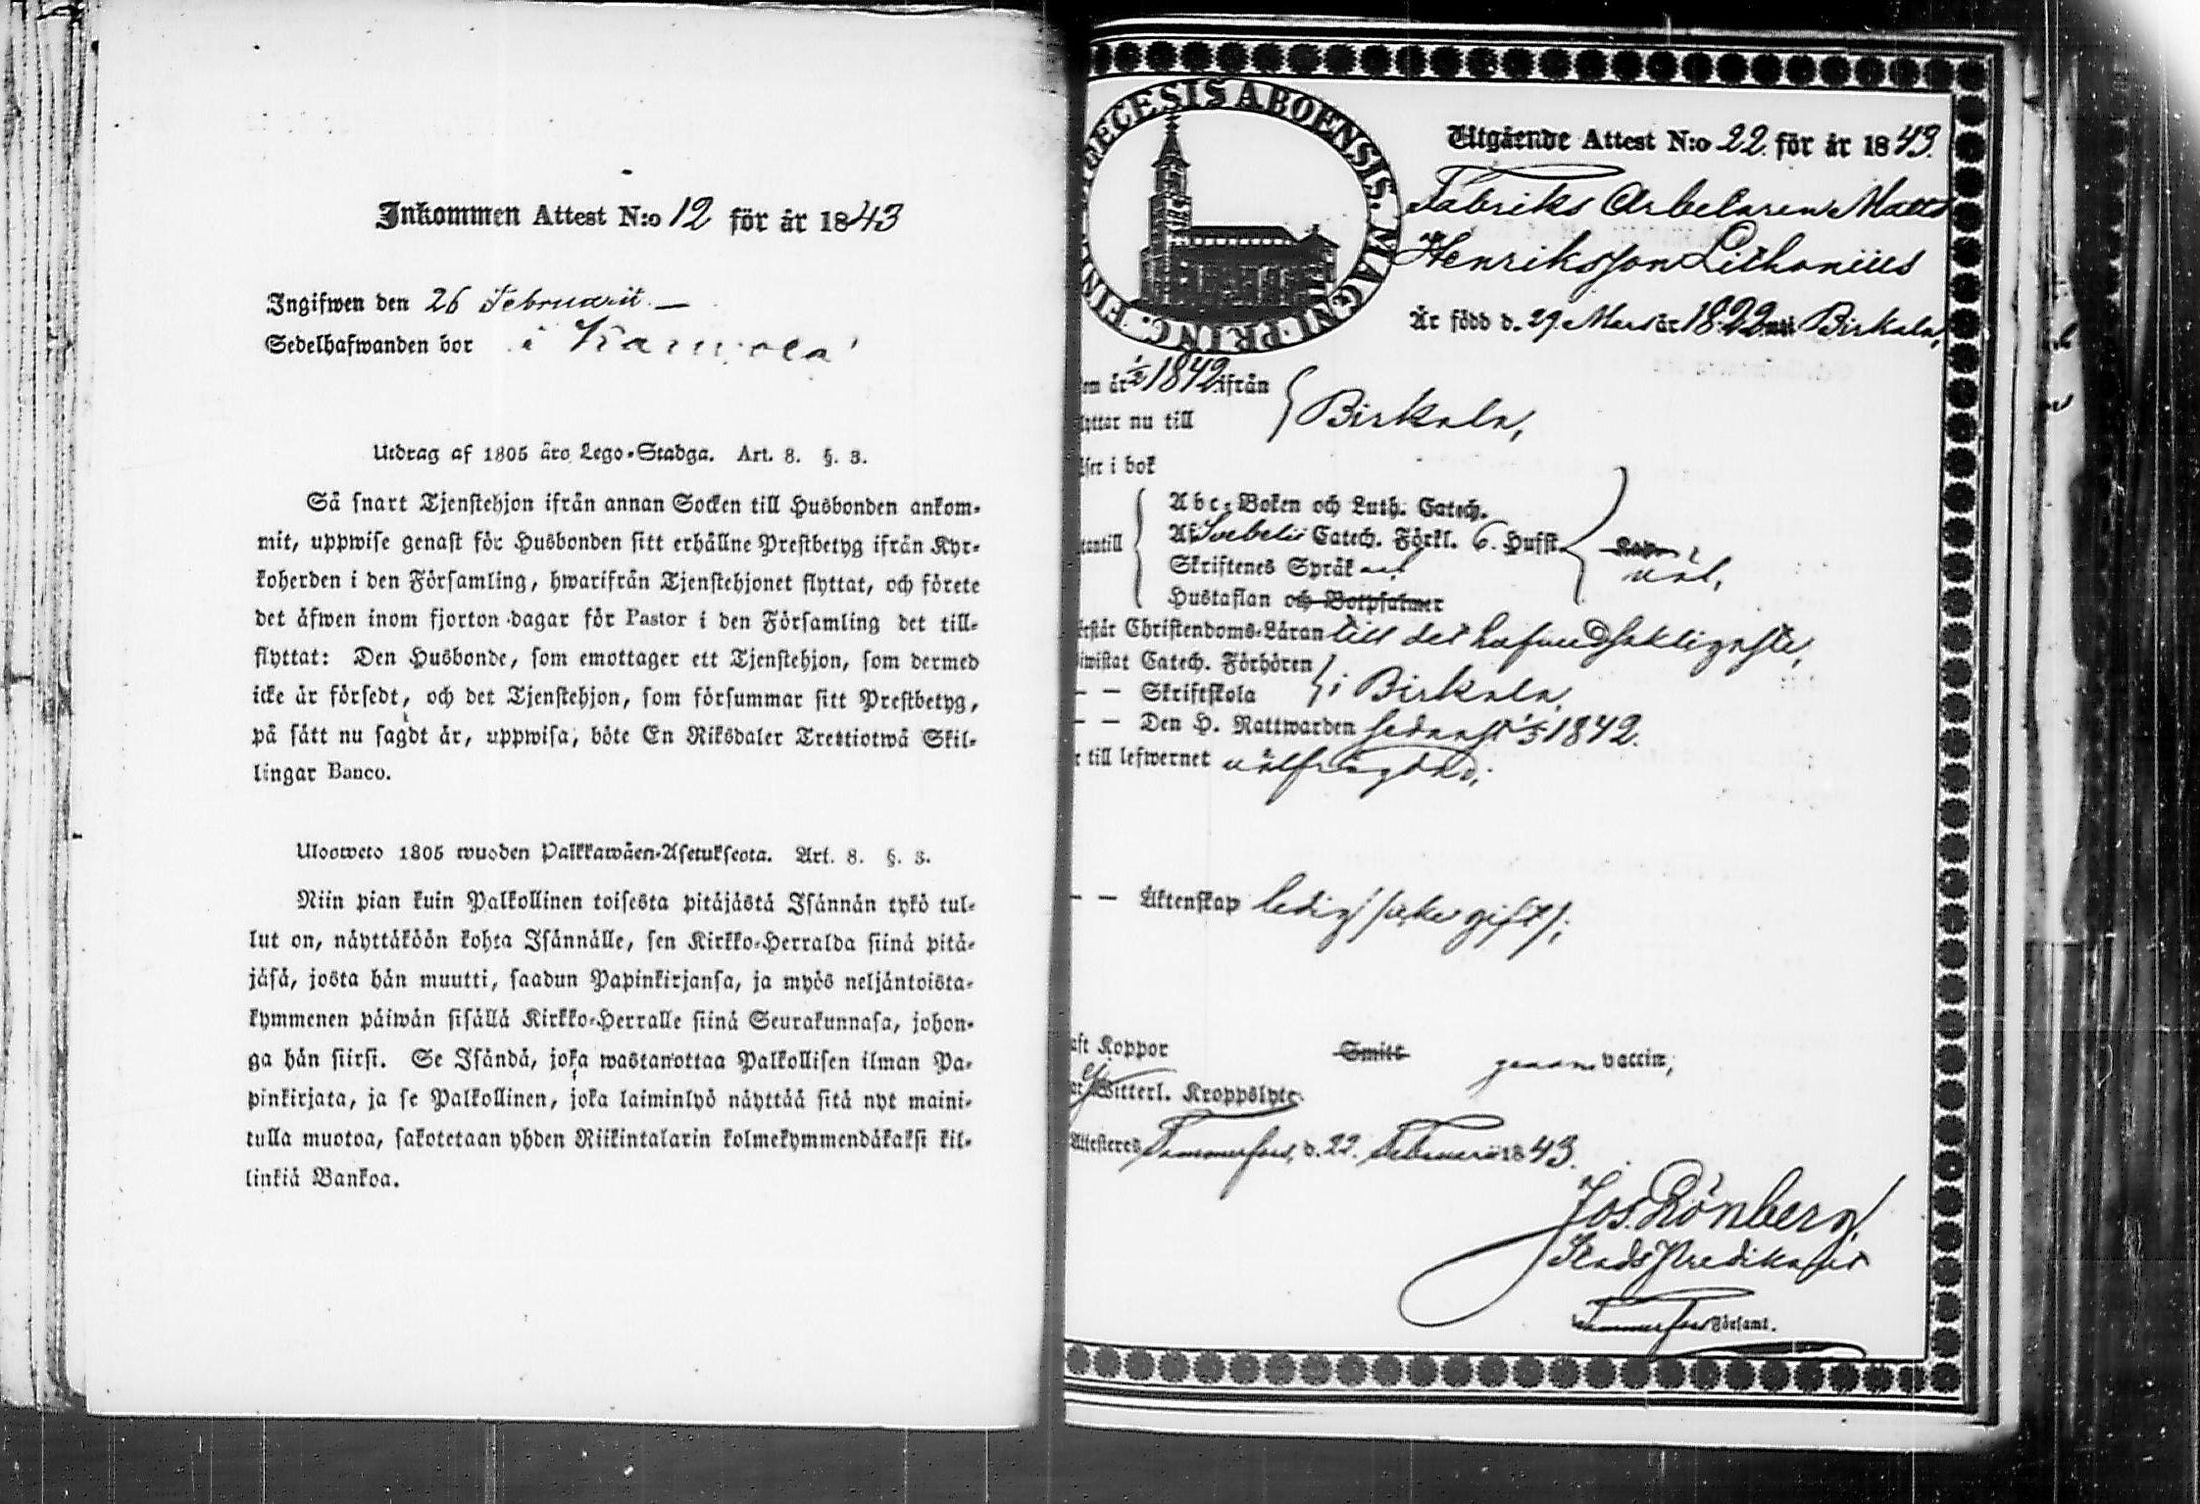 Inkommen Attest N:o 12 för år 1843
Ingifwen den 26 Februarii
Sedelhafwanden bor i
Utdrag af 1805 års Lego-Stadga. Art. 8. §. 3.
Så snart Tjenstehjon ifrån annan Socken till Husbonden ankom-
mit, uppwise genast för Husbonden sitt erhållne Prestbetyg ifrån Kyr-
koherden i den Församling, hwarifrån Tjenstehjonet flyttat, och förete
det äfwen inom fjorton dagar för Pastor i den Församling det till-
flyttat: Den Husbonde, som emottager ett Tjenstehjon, som dermed
icke är försedt, och det Tjenstehjon, som försummar sitt Prestbetyg,
på sätt nu sagdt är, uppwisa, böte En Riksdaler Trettiotwå Skil-
lingar Banco.
Ulosweto 1805 wuoden Palkkawäen-Asetuksesta. Art. 8. §. 3.
Niin pian kuin Palkollinen toisesta pitäjästä Isännän tykö tul-
lut on, näyttäköön kohta Isännälle, sen Kirkko-Herralda siinä pitä-
jäsä, josta hän muutti, saadun Papinkirjansa, ja myös neljäntoista-
kymmenen päiwän sisällä Kirkko-Herralle siinä Seurakunnasa, johon-
ga hän siirsi. Se Isändä, joka wastanottaa Palkollisen ilman Pa-
pinkirjata, ja se Palkollinen, joka laiminlyö näyttää sitä nyt maini-
tulla muotoa, sakotetaan yhden Riikintalarin kolmekymmendäkaksi kil-
linkiä Bankoa.
DIOECESIS ABOENSIS. MAGNI PRINC. FINL
Utgående Attest N:o 22. för år 1843.
Fabriks Arbetaren Matts
Henriksson Lithonius
Är född d. 29. Mars år 1822 uti Birkala,
om år 1/2 1842 ifrån
lyttar nu till } Birkala,
äser i bok
Abc-Boken och Luth. Catech.
Af Svebelii Catech. Förkl. 6. Hufst.
utantill
Skriftenes Språk
Hustaflan och Botpsalmer
väl,
örstår Christendoms-Läran till det hufvudsakligaste,
iwistat Catech. Förhören
— — Skriftskola } i Birkala,
— — Den H. Nattwarden sednast 1842.
r till lefwernet välfrägdad;
— — Äktenskap ledig /: icke gift :/;
aft Koppor Smitt genom vaccin;
ar Witterl. Kroppslyte
Attesteres Tammerfors, d. 22. Februarii 1843.
Jos. Rönberg,
Stads Predikant
Tammerfors Församl.